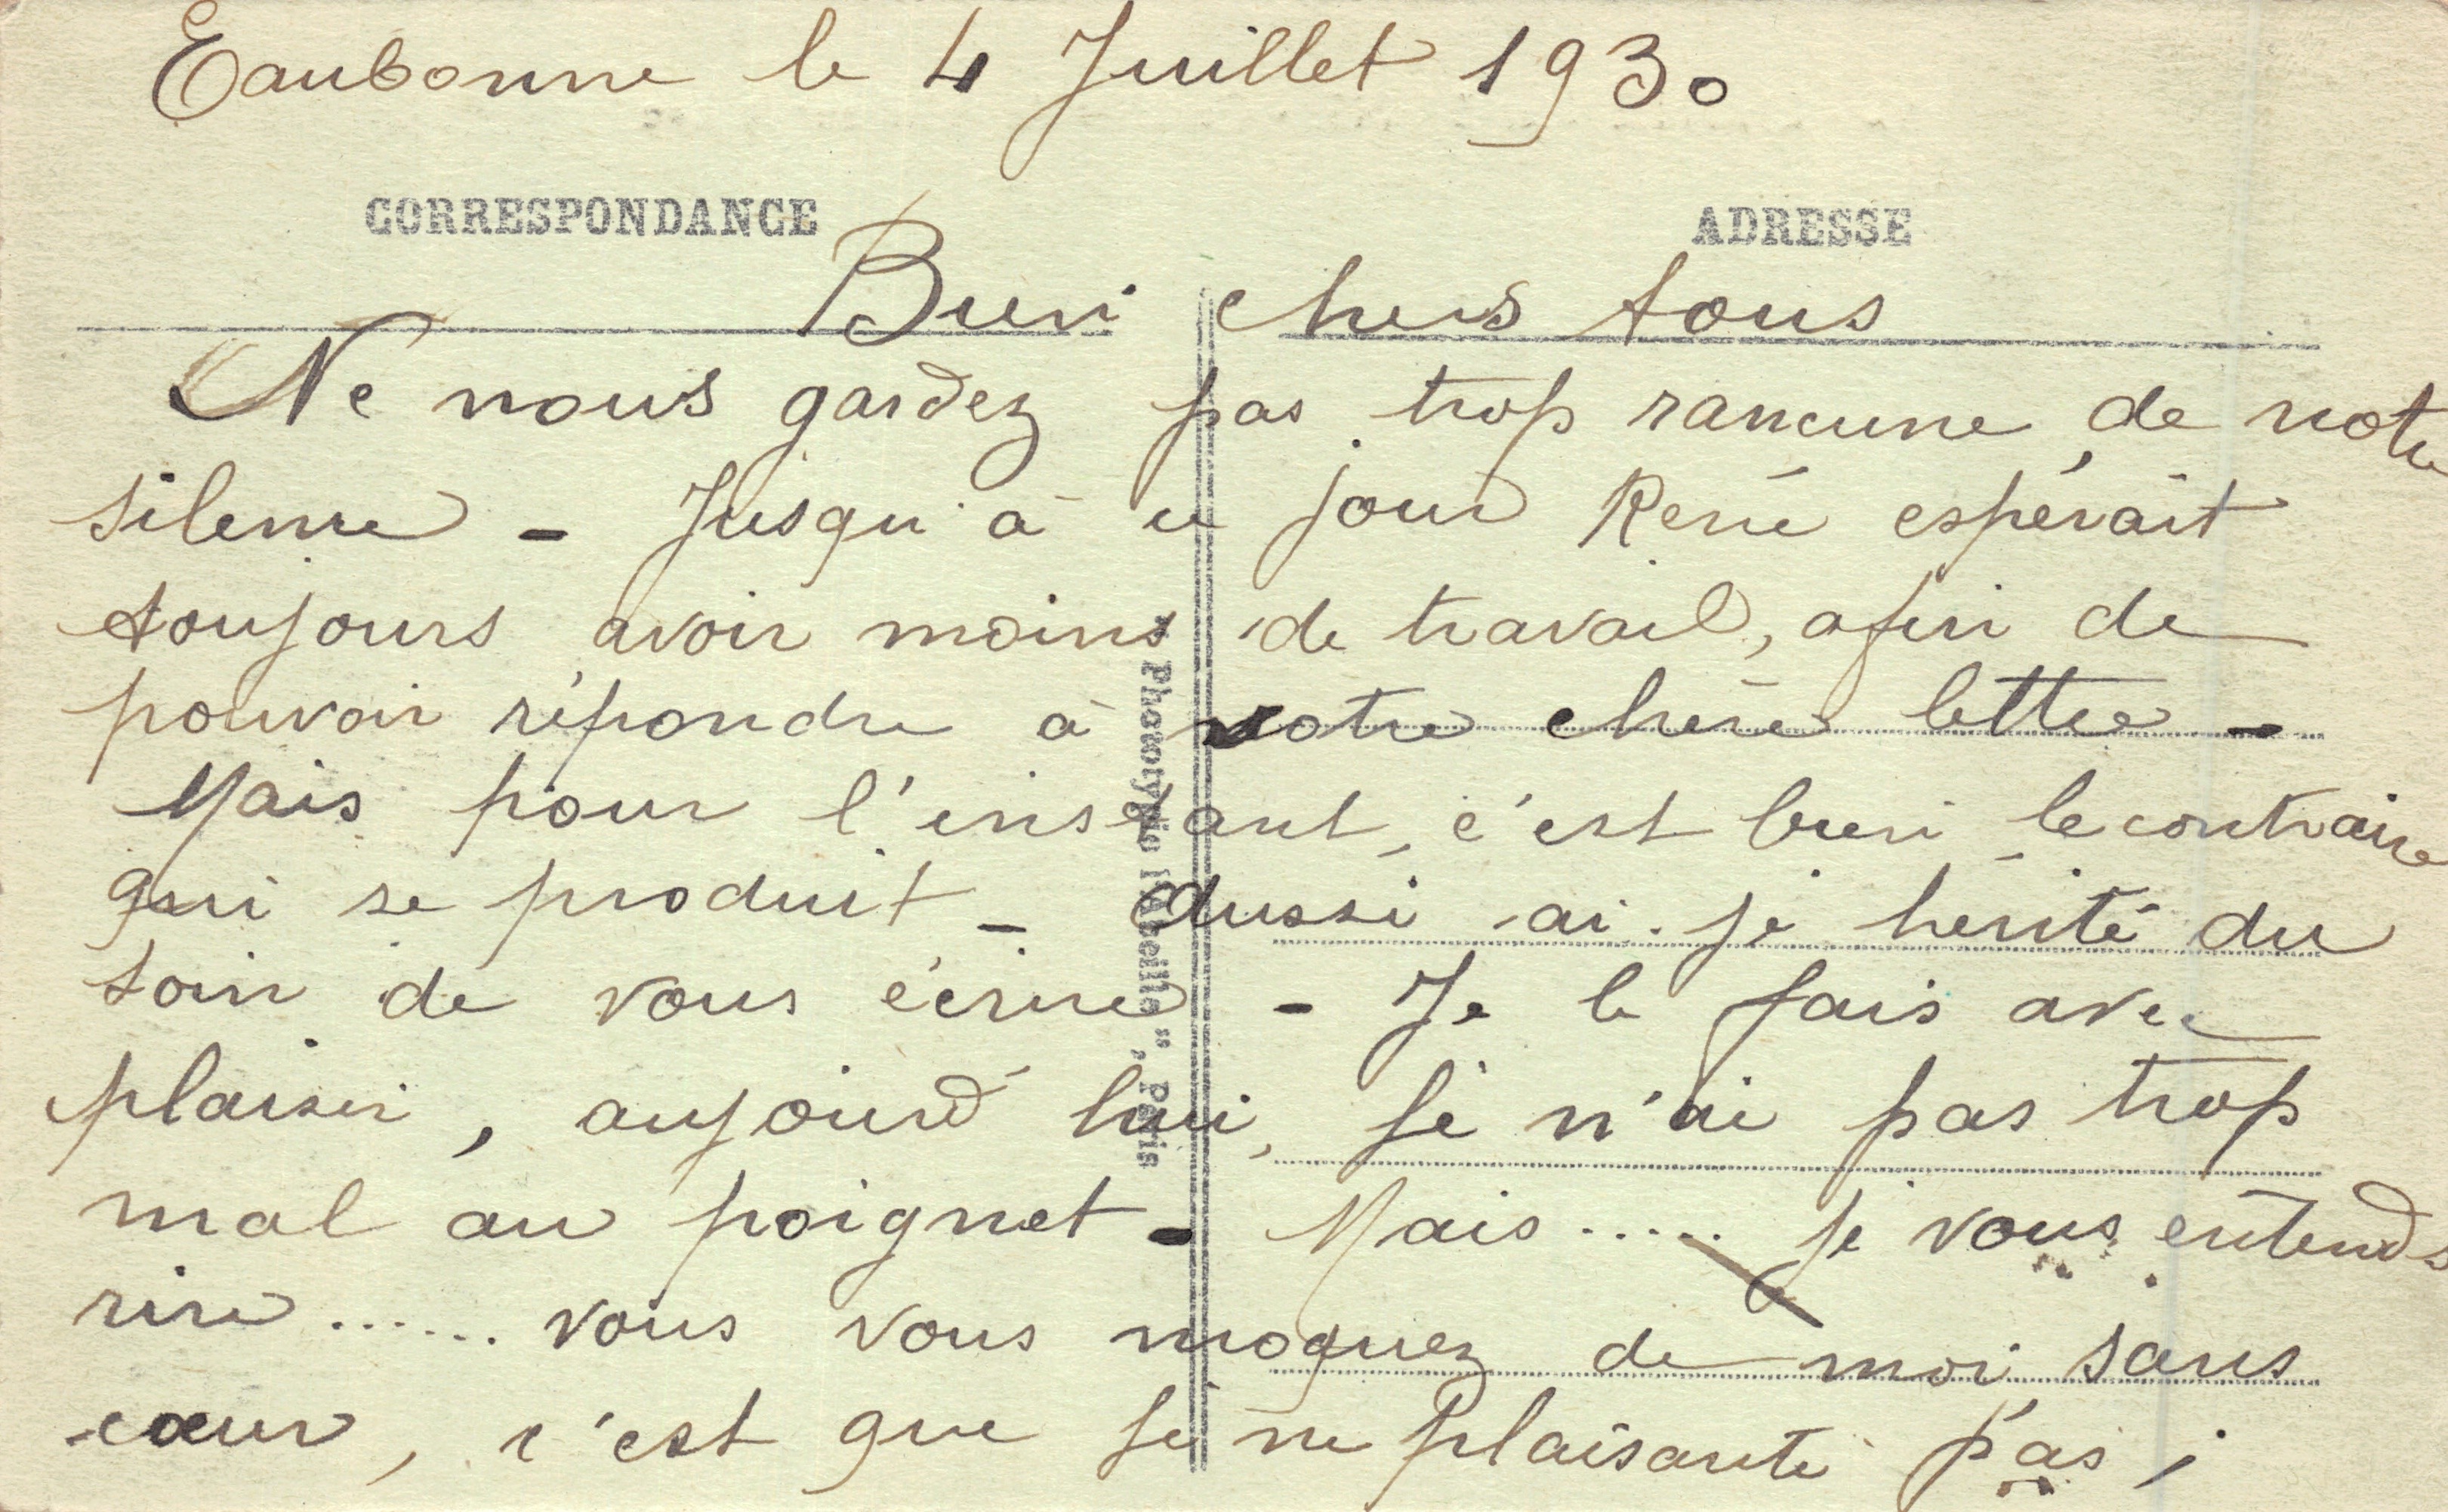 Eaubonne le 4 Juillet 1930
CORRESPONDANCE
ADRESSE
Bien chers tous
Ne nous gardez pas trop rancune de notre
silence - Jusqu'à ce jour René espérait
toujours avoir moins de travail, afin de
pouvoir répondre à votre chère lettre -
Mais pour l'instant, c'est bien le contraire
qui se produit - Aussi ai-je hérité du
soin de vous écrire - Je le fais avec
plaisir, aujourd'hui, je n'ai pas trop
mal au poignet - Mais ..... je vous entends
rire ...... vous vous moquez de moi sans
cœur, c'est que je ne plaisante pas ;
Phototypie l'Abeille", Paris